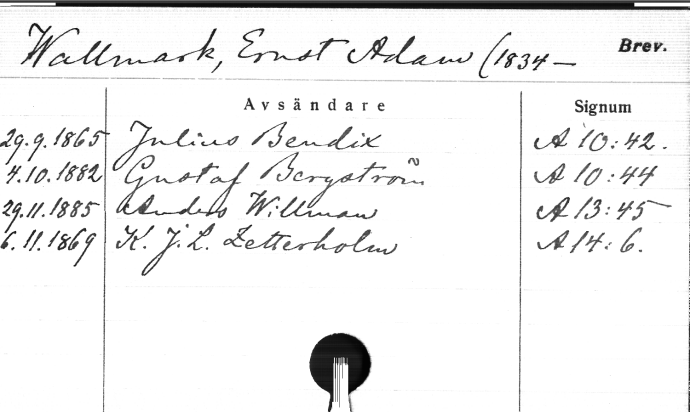 Wallmark, Ernst Adam (1834 – Brev.
Avsändare Signum
29.9.1865 Julius Bendix A 10:42.
4.10.1882 Gustaf Bergström A 10:44
29.11.1885 Anders Willman A 13:45
6.11.1869 K. J. L. Zetterholm A 14:6.